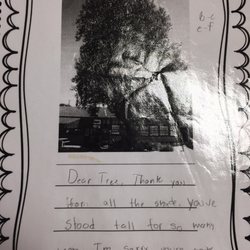 b-c
e-f
Dear Tree, Thank you
for all the shade. you've
stood tall for so many
I'm sorry